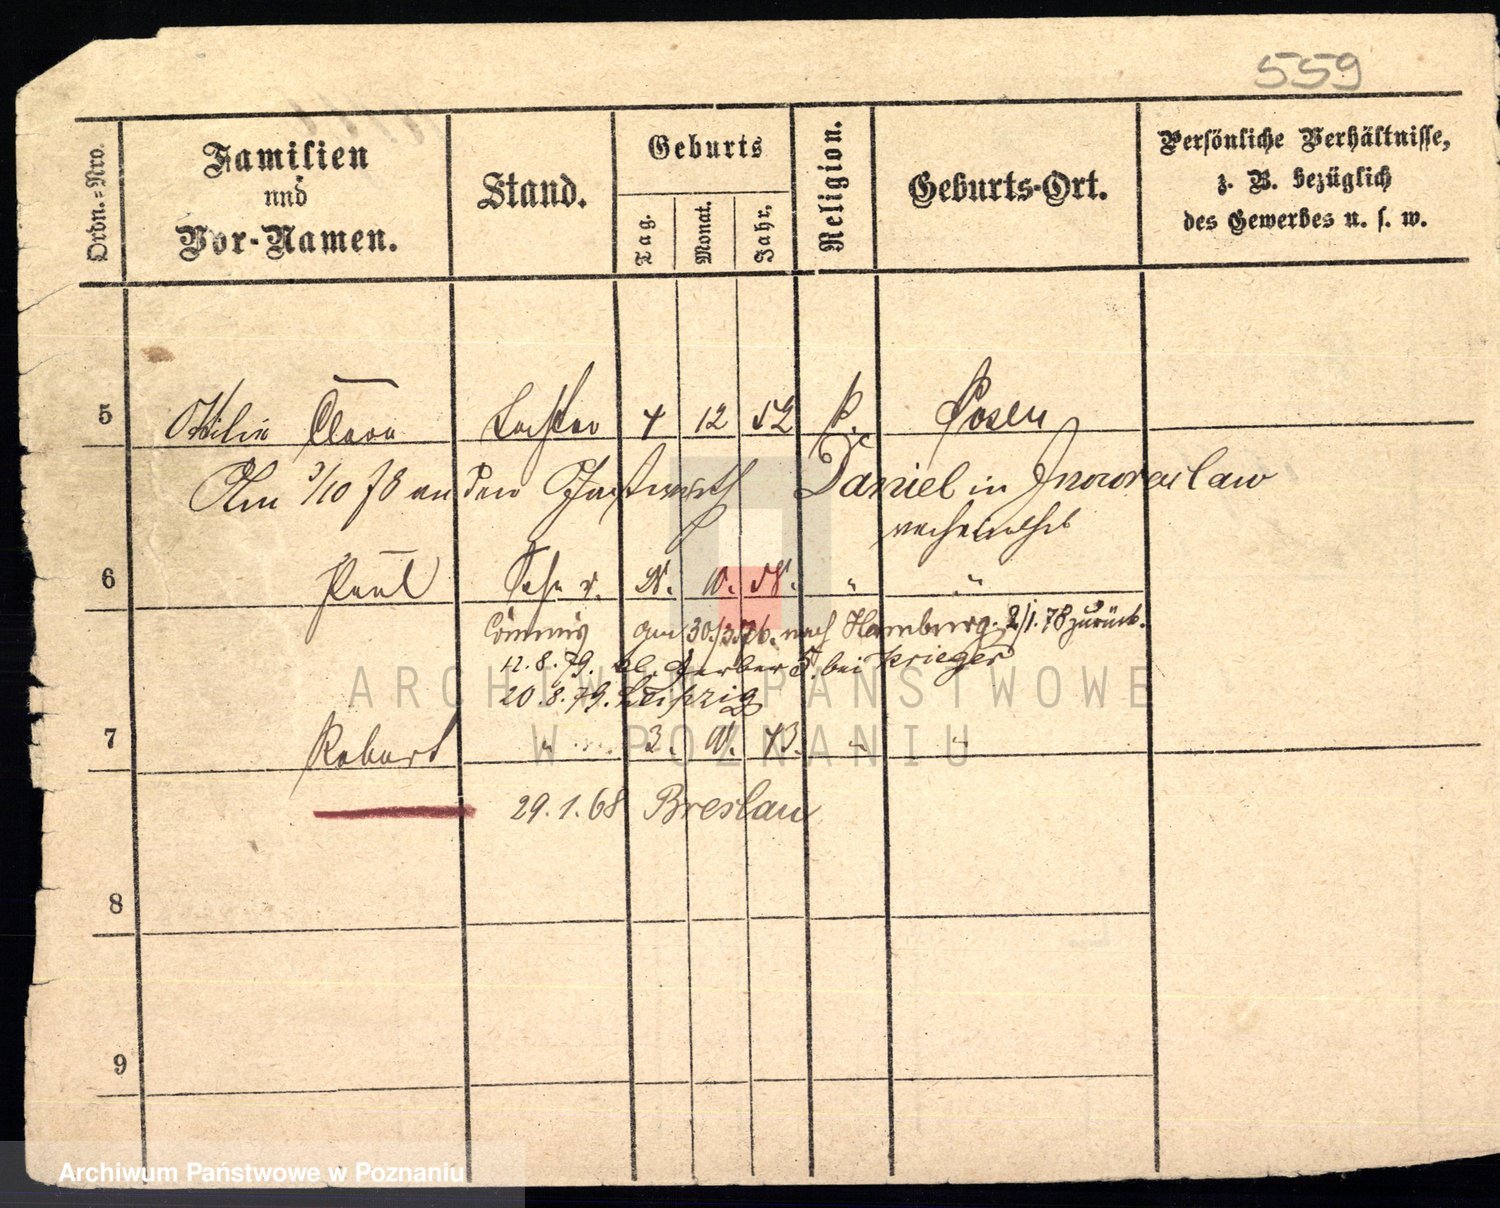 559
Ordn.=Nro.
Familien
und
Vor-Namen.
Stand.
Geburts
Tag.
Monat.
Jahr.
Religion.
Geburts-Ort.
Persönliche Verhältnisse,
z. B. bezüglich
des Gewerbes u. s. w.
5 Ottilie Clara Tochter 4 12 52 k. Posen
Am 3/10 78 an den Gastwirth Daniel in Inowraclaw
verheirathet
6 Paul Sohn " "
Commis am nach Hamburg. 2/1.78 zurück.
12.8.79. kl. Gerber 5. bei Krieger
20.8.79. Leipzig
7 Robert " 3. " "
29.1.68 Breslau
8
9
ARCHIWUM PAŃSTWOWE
W POZNANIU
Archiwum Państwowe w Poznaniu